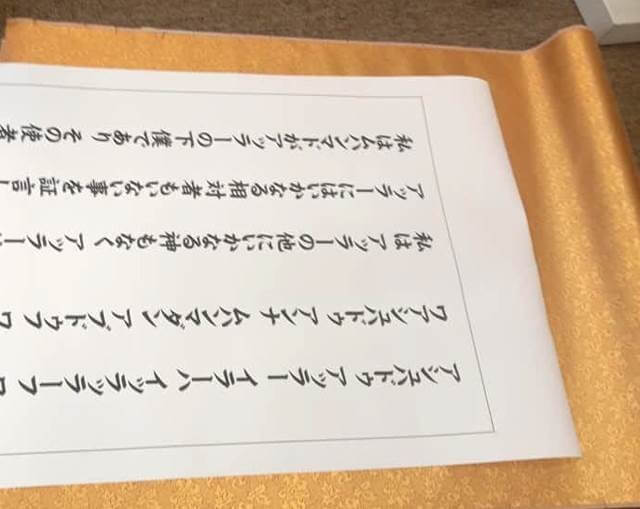 アシュハドゥ アッラー イラーハ イッラッラーフ ワ
ワアシュハドゥ アンナ ムハンマダン アブドゥフ ワ
私は アッラーの他にいかなる神もなく アッラー
アッラーにはいかなる相対者もいない事を証言し
私はムハンマドがアッラーの下僕であり その使者